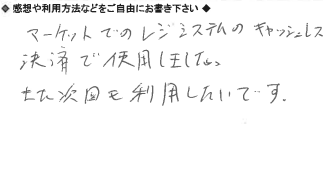 ◆ 感想や利用方法などをご自由にお書き下さい ◆
マーケットでのレジシステムのキャッシュレス
決済で使用しました。
また次回も利用したいです.